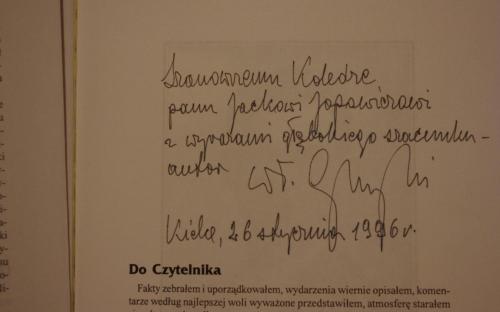 Szanownemu Koledze
panu Jackowi
z wyrazami głębokiego szacunku -
autor wł.
Kielce, 26 stycznia 1996 r.
Do Czytelnika
Fakty zebrałem i uporządkowałem, wydarzenia wiernie opisałem, komen-
tarze według najlepszej woli wyważone przedstawiłem, atmosferę starałem